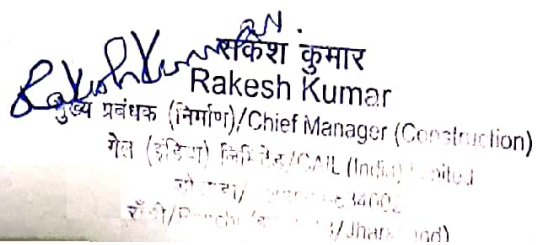 Rakesh Kumar
राकेश कुमार
Rakesh Kumar
मुख्य प्रबंधक (निर्माण)/Chief Manager (Construction)
गेल (इंडिया) लिमिटेड/GAIL (India) Limited
राँची/Ranchi